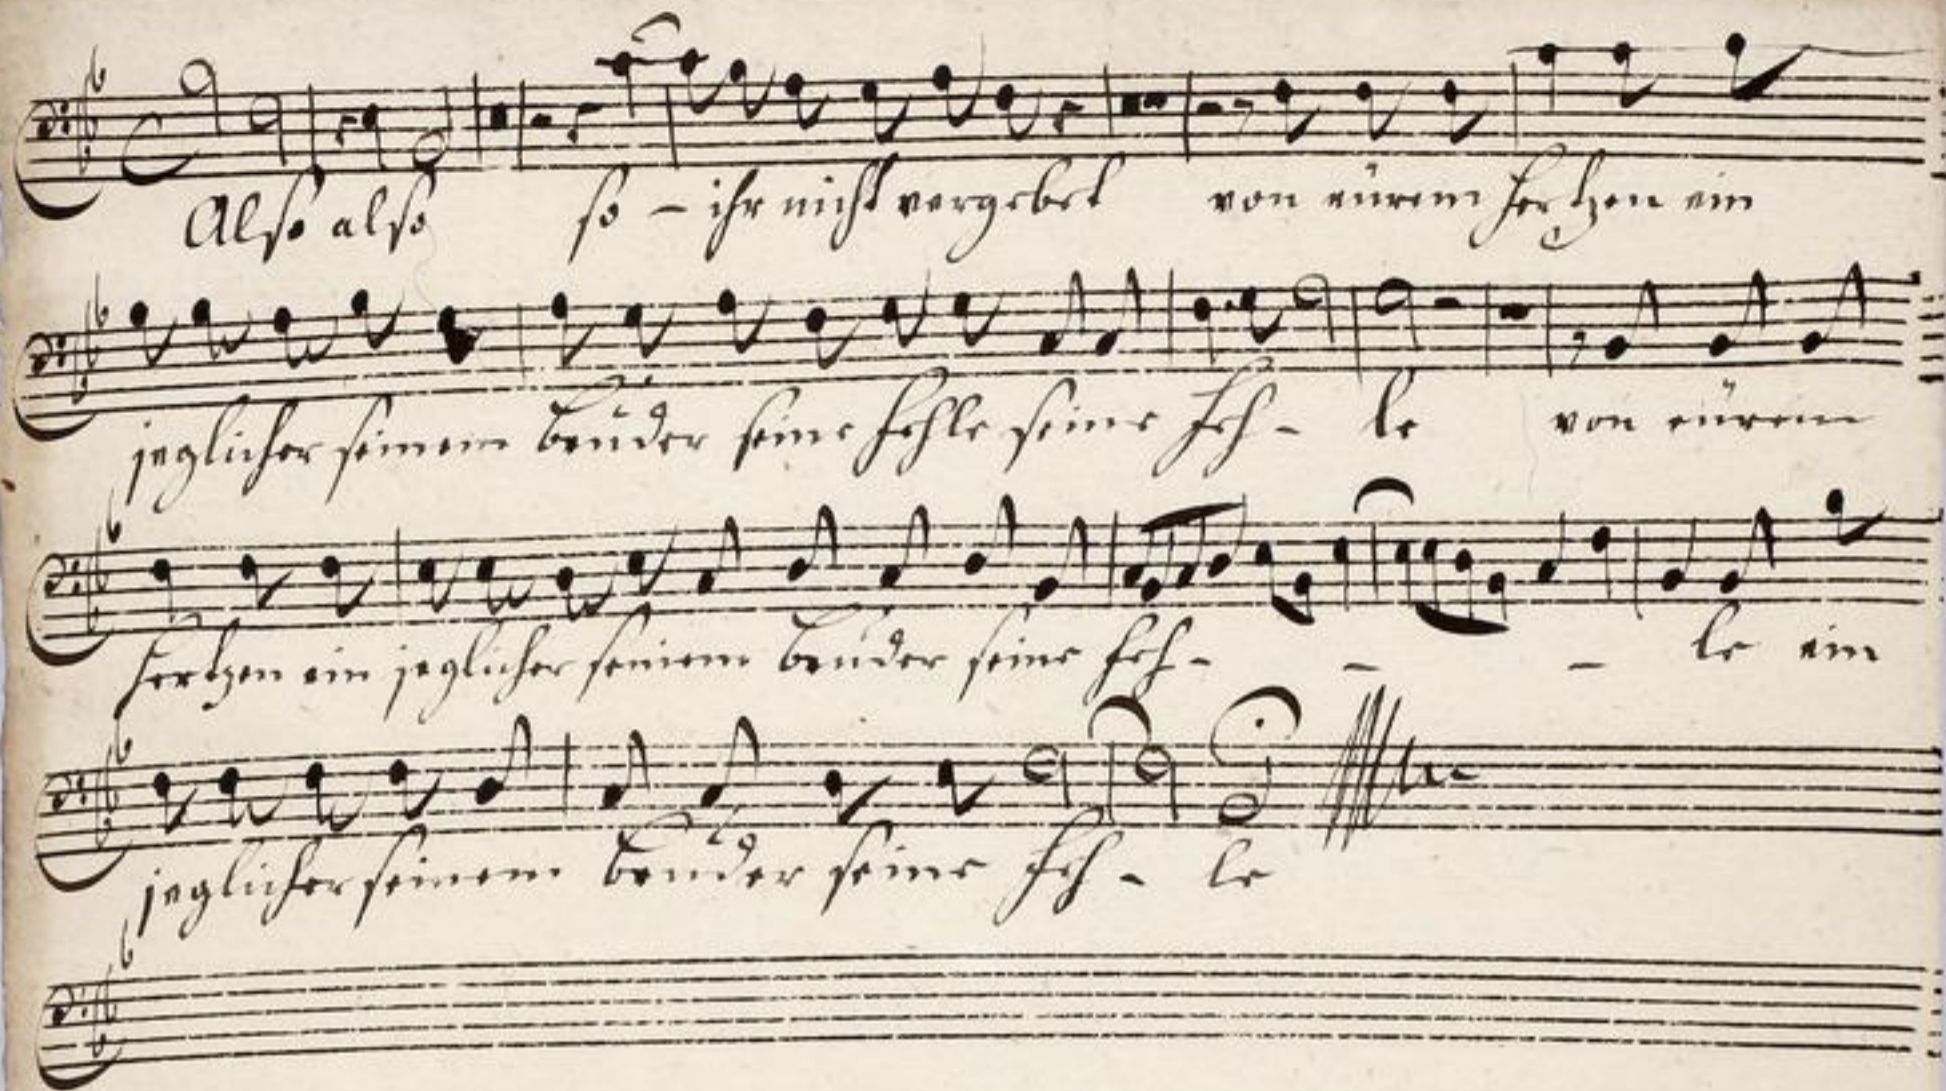 Also also so - ihr nicht vergebet von eürem hertzen ein
jeglicher seinem bruder seine fehle seine feh - le von eürem
hertzen ein jeglicher seinem bruder seine feh - - - le ein
jeglicher seinem bruder seine feh - le